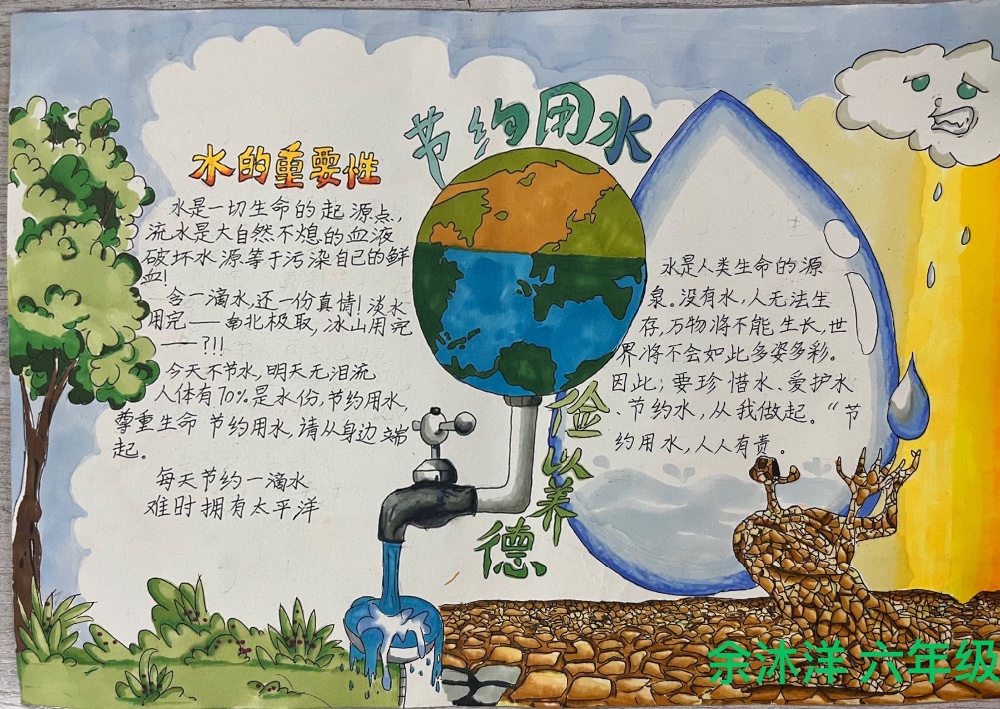 节约用水
水的重要性
水是一切生命的起源点,
流水是大自然不熄的血液
破坏水源等于污染自己的鲜
血!
含一滴水,还一份真情!淡水
用完——南北极取,冰山用完
——?!!
今天不节水,明天无泪流
人体有70%是水份,节约用水,
尊重生命 节约用水,请从身边端
起。
每天节约一滴水
难时拥有太平洋
俭以养德
水是人类生命的源
泉。没有水,人无法生
存,万物将不能生长,世
界将不会如此多姿多彩。
因此;要珍惜水、爱护水
、节约水,从我做起。“节
约用水,人人有责。
余沐洋 六年级